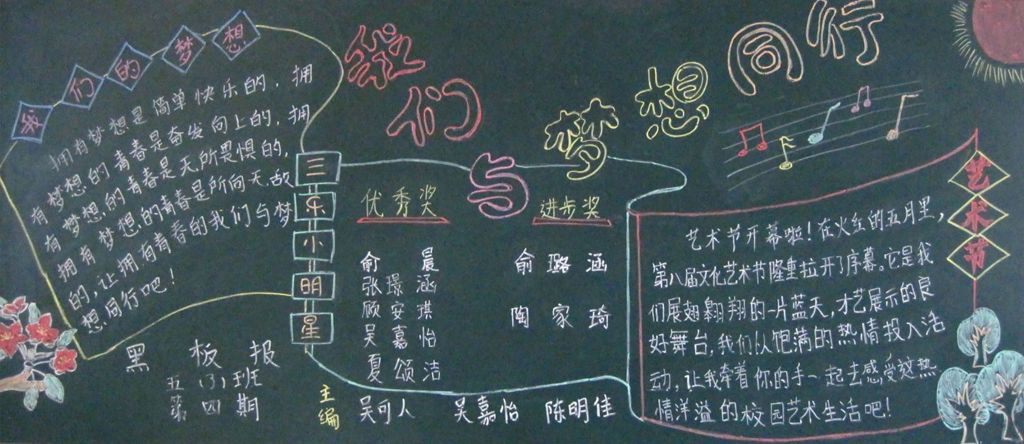 我们与梦想同行
我们的梦想
拥有梦想是简单快乐的，拥
有梦想的青春是奋发向上的，拥
有梦想的青春是无所畏惧的，
拥有梦想的青春是所向无敌
的，让拥有青春的我们与梦
想同行吧！
黑板报
五(1)班
第四期
三乐小明星
优秀奖
俞晨
张璟涵
顾安琪
吴嘉怡
夏颂洁
进步奖
俞璐涵
陶家琦
主编 吴可人 吴嘉怡 陈明佳
艺术节
艺术节开幕啦！在火红的五月里，
第八届文化艺术节隆重拉开了序幕。它是我
们展翅翱翔的一片蓝天，才艺展示的良
好舞台，我们以饱满的热情投入活
动，让我牵着你的手一起去感受这热
情洋溢的校园艺术生活吧！